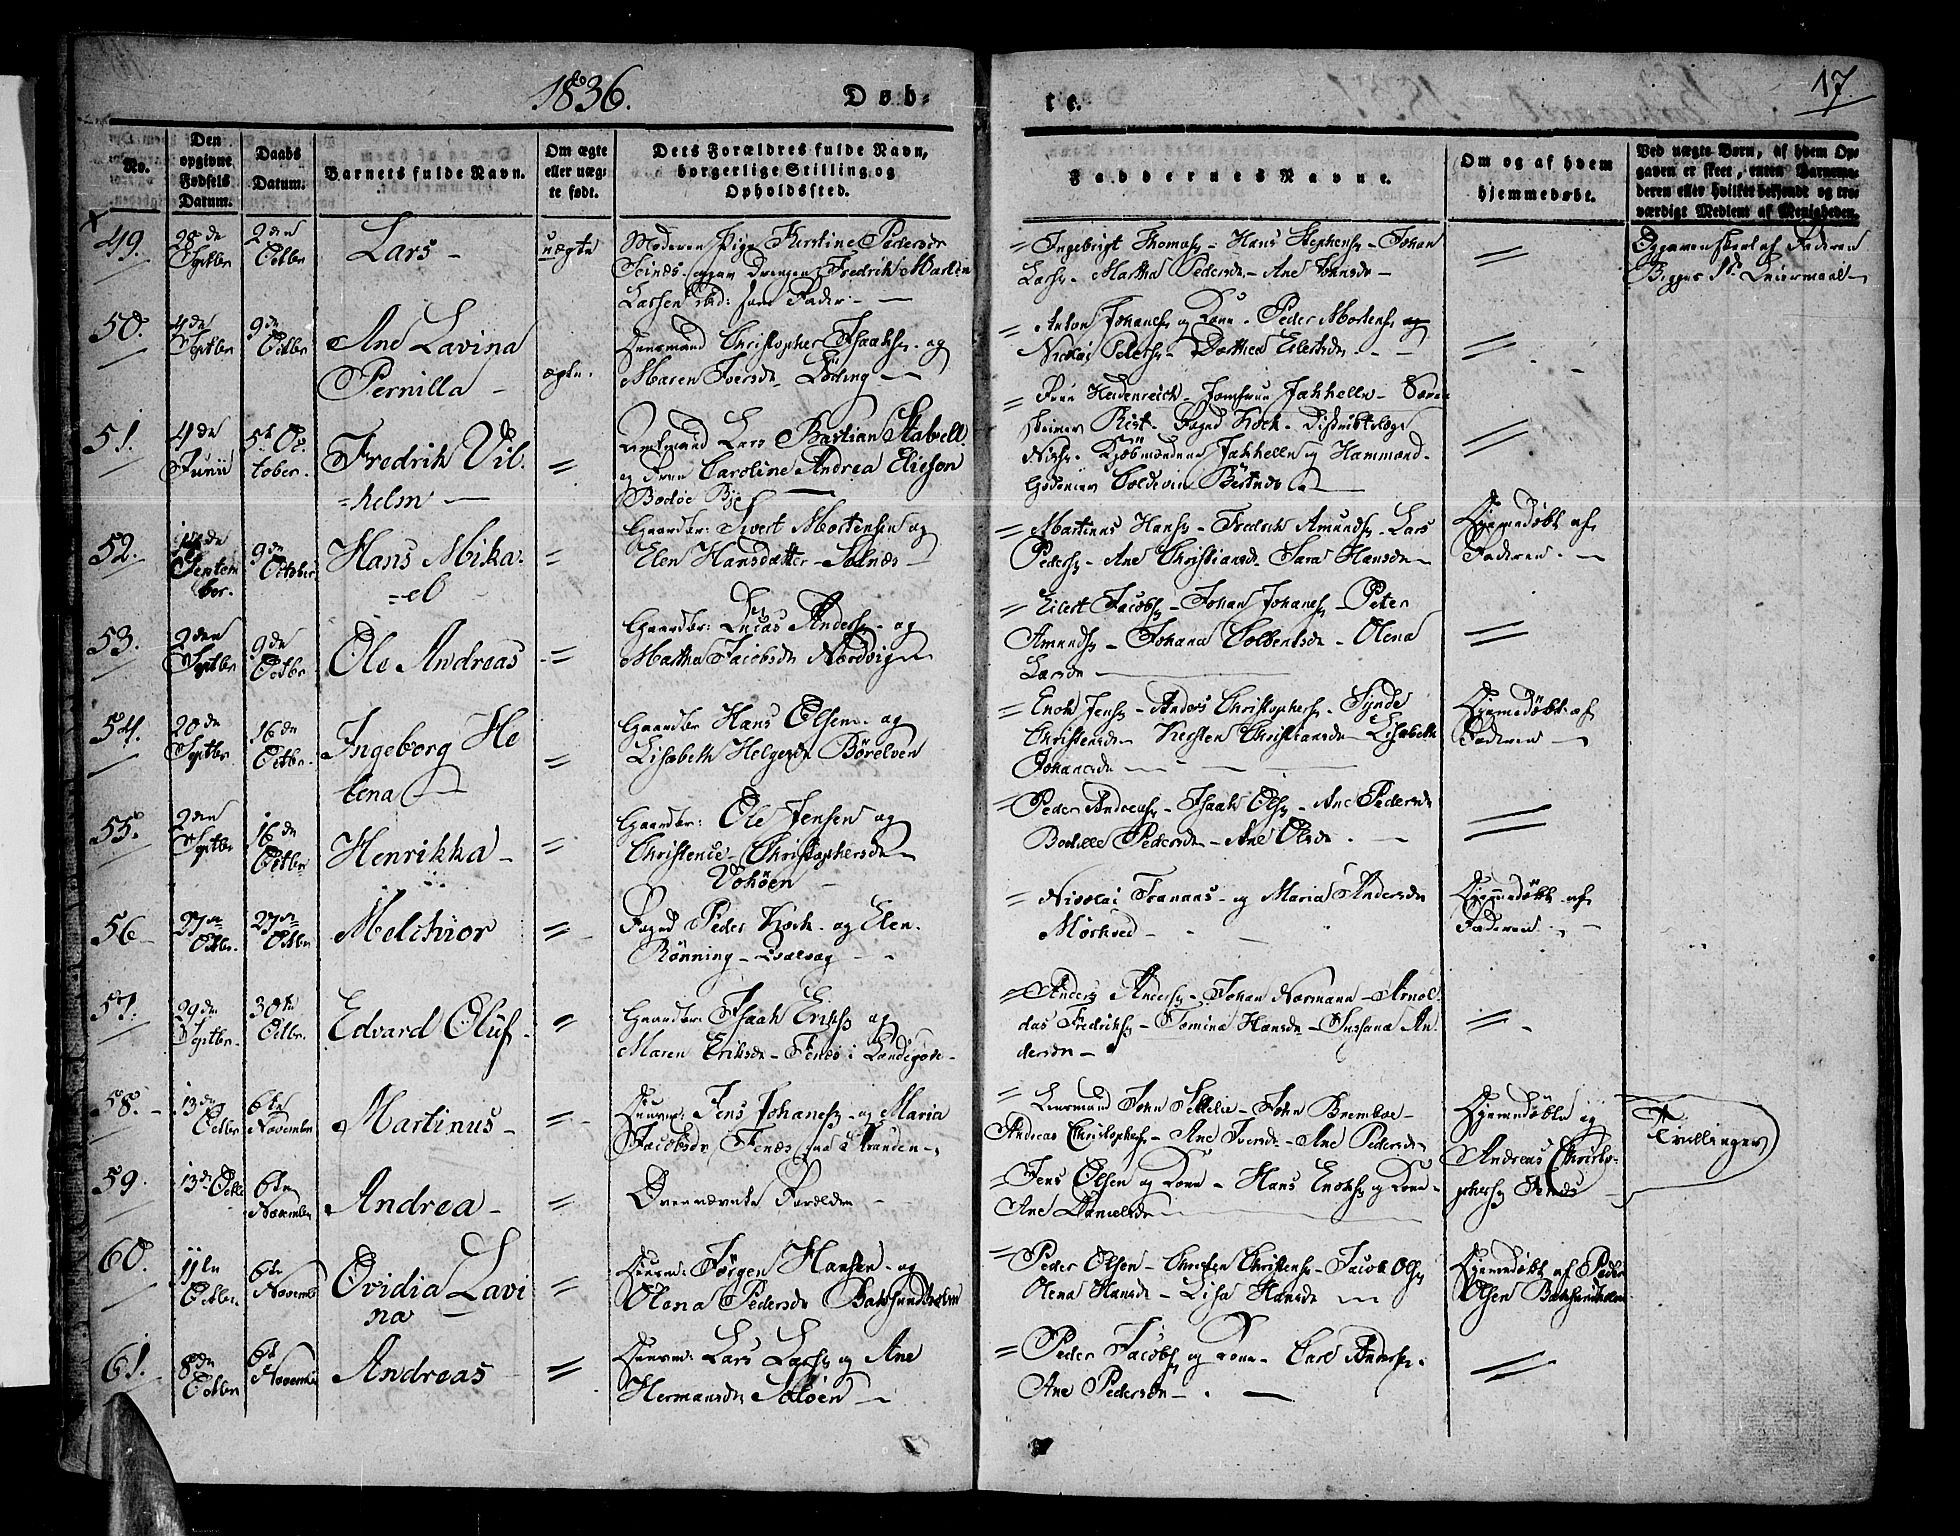 1836.
Døb-
te.
17.
No.
Den opgivne Fødsels Datum.
Daabs Datum.
Barnets fulde Navn.
Om ægte eller uægte født.
Dets Forældres fulde Navn, borgerlige Stilling og Opholdssted.
Faddernes Navne.
Om og af hvem hjemmedøbt.
Ved uægte Børn, af hvem Opgaven er skeet, enten Barnemoderen eller hvilket bekjendt og troværdigt Medlem af Menigheden.
49. 28de Septbr 2den Octbr Lars - uægte
Moderen Pige Kirstine Pedersdr
Seines. opgav Drengen Fredrik Martin
Larsen ibd: som Fader -
= Ingebrigt Thomass - Hans Stephens - Johan
Lars - Martha Pedersdr - Ane Johnsdr -
Opgaven skeet af Faderen
Begges 1te Leiermaal -
50. 4de Septbr 9de Octbr Ane Lavina
Pernilla - ægte.
Huusmand Christopher Isaaks - og
Maren Iversdr Løding -
= Anton Johanes og Kone - Peder Mortens
Nicolai Peders - Dorthea Eilertsdr -
51. 4de Junii 5te October. Fredrik Vil-
=helm - =
Amtmand Lars Bastian Stabell
og Frue Caroline Andrea Elieson
Bodøe Bye
= Frue Heidenreich - Jomfrue Jakhelln -
Rist - Foged Koch - Districtslæge
Kjøbmændene Jakhelln og Hammond
Coldevin
52. September. 9de October Hans Mika-
=el =
Gaardbr: Sivert Mortensen og
Elen Hansdatter - Solnæs -
= Martinus Hans - Fredrik Amunds - Lars
Peders - Ane Christiansd - Sara Hansdr -
Hjemmedøbt af
Faderen. -
53. 2den Septbr 9de Octbr Ole Andreas =
Gaardbr: Lucas Anders - og
Martha Jacobsdr Nordvig -
= Eilert Jacobs - Johan Johanes - Peter
Amunds - Johana - Olena
Larsdr -
54. 20de Septbr 16de Octbr. Ingeborg He
lena =
Gaardbr Hans Olsen og
Lisabeth Helgesdr Børelven
= Enok Jens - Anders Christophers - Synde
Christensdr - Kirsten Christiansdr - Lisabeth
Johanesdr -
Hjemmedøbt af
Faderen -
55. 2den Septbr 16de Octbr Henrikka - =
Gaardbr: Ole Jensen og
Christence Christophersdr -
= Peder Andreas - Isaak Ols - Ane Pedersdr
Bodille Pedersdr - Ane Olsdr -
56. 27de Octbr. 27de Octbr Melchior =
Foged Peder Koch - og Elen
Rønning - Hvalvaag -
= Nicolai Tranaas - og Maria Andersdr
Mørkved -
Hjemmedøbt af
Faderen. -
57. 29de Septbr. 30te Octbr. Edvard Oluf - =
Gaardbr: Isaak Eriks og
Maren Eriksdr - Fenes i Landegode -
= Anders Anders - Johan Normann - Arnol-
das Fredriks - Tomina Hansdr - Sussana An-
dersdr -
58. 13de Octbr 6te Novembr Martinus - =
Huusm: Jens Johanes - og Maria
Jacobsdr Fenes paa Stranden -
= Leensmand John - John Bremboe -
Andreas Christophers - Ane Iversdr - Ane Pedersdr -
Hjemmedøbte af
Andreas Christo-
phers Fenes
Tvillinger
59. 13de Octbr 6te Novembr Andrea - =
Overnævnte Forældre -
= Jens Olsen og Kone - Hans Enoks og Kone -
Ane Danielsdr
60. 11te Octbr. 6te Novemb Ovidia Lavi
na =
Huusm: Jørgen Hansen - og
Olena Pedersdr Baksundholm
= Peder Olsen - Christen Christens - Jacob Ols
Olena Hansdr - Lisa Hansdr
Hjemmedøbt af Peder
Olsen Baksundholm
61. 8de Octbr 6te Novembr Andreas =
Huusm: Lars Lars og Ane
Hermansdr
= Peder Jacobs og Kone - Carl Anders -
Ane Pedersdr -